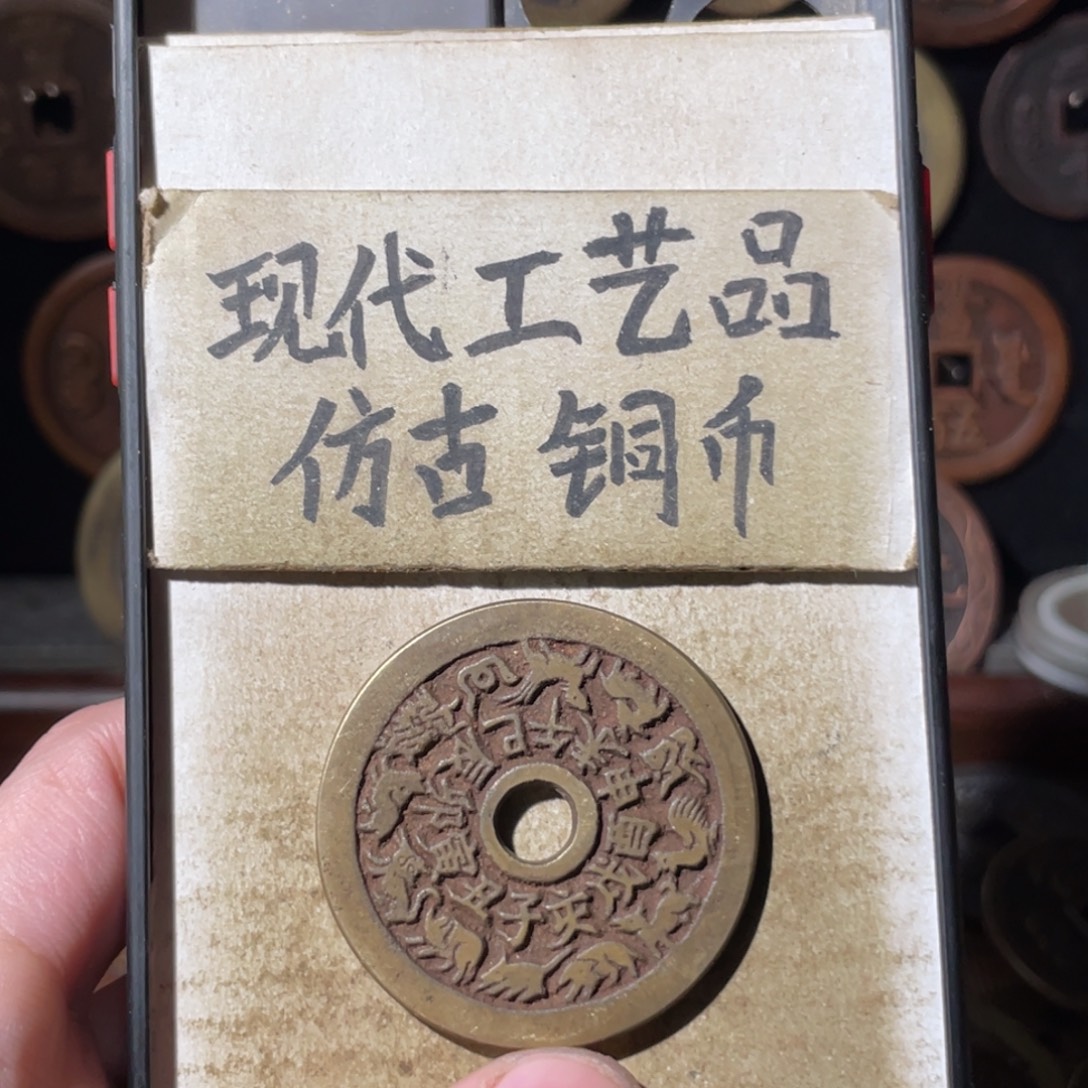 现代工艺品
仿古铜币
子丑寅卯辰巳午未申酉戌亥